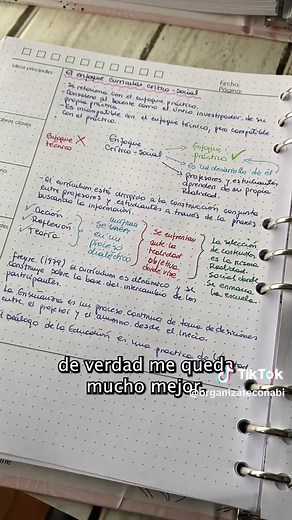 Ideas principales
Fecha:
Página:
El Enfoque Curricular Crítico-Social
- Se relaciona con el enfoque práctico.
- Considera al docente como el único investigador de su
propia práctica.
- Es incompatible con el enfoque técnico, pero compatible
con el práctico.
Enfoque técnico
Enfoque Crítico-Social
Enfoque práctico
es un desarrollo de él
profesores y estudiantes
aprenden de su propia
realidad.
- El curriculum está dirigido a la construcción conjunta
entre profesores y estudiantes a través de la praxis
buscando la información.
Acción
Reflexión
Teoría
se unen
en un
proceso
dialéctico
Se enfrentan
ante la
realidad
objetiva
donde vive
La selección
de contenidos
es la misma
realidad
social donde
se enmarca
la escuela.
Freyre (1979) el curriculum es dinámico y se
construye sobre la base del intercambio de los
participantes.
La Enseñanza es un proceso continuo de toma de decisiones
entre el profesor y el alumno desde el inicio.
Diálogo de la Educación es una práctica de la
de verdad me queda
mucho mejor.
TikTok
@organizateconabi